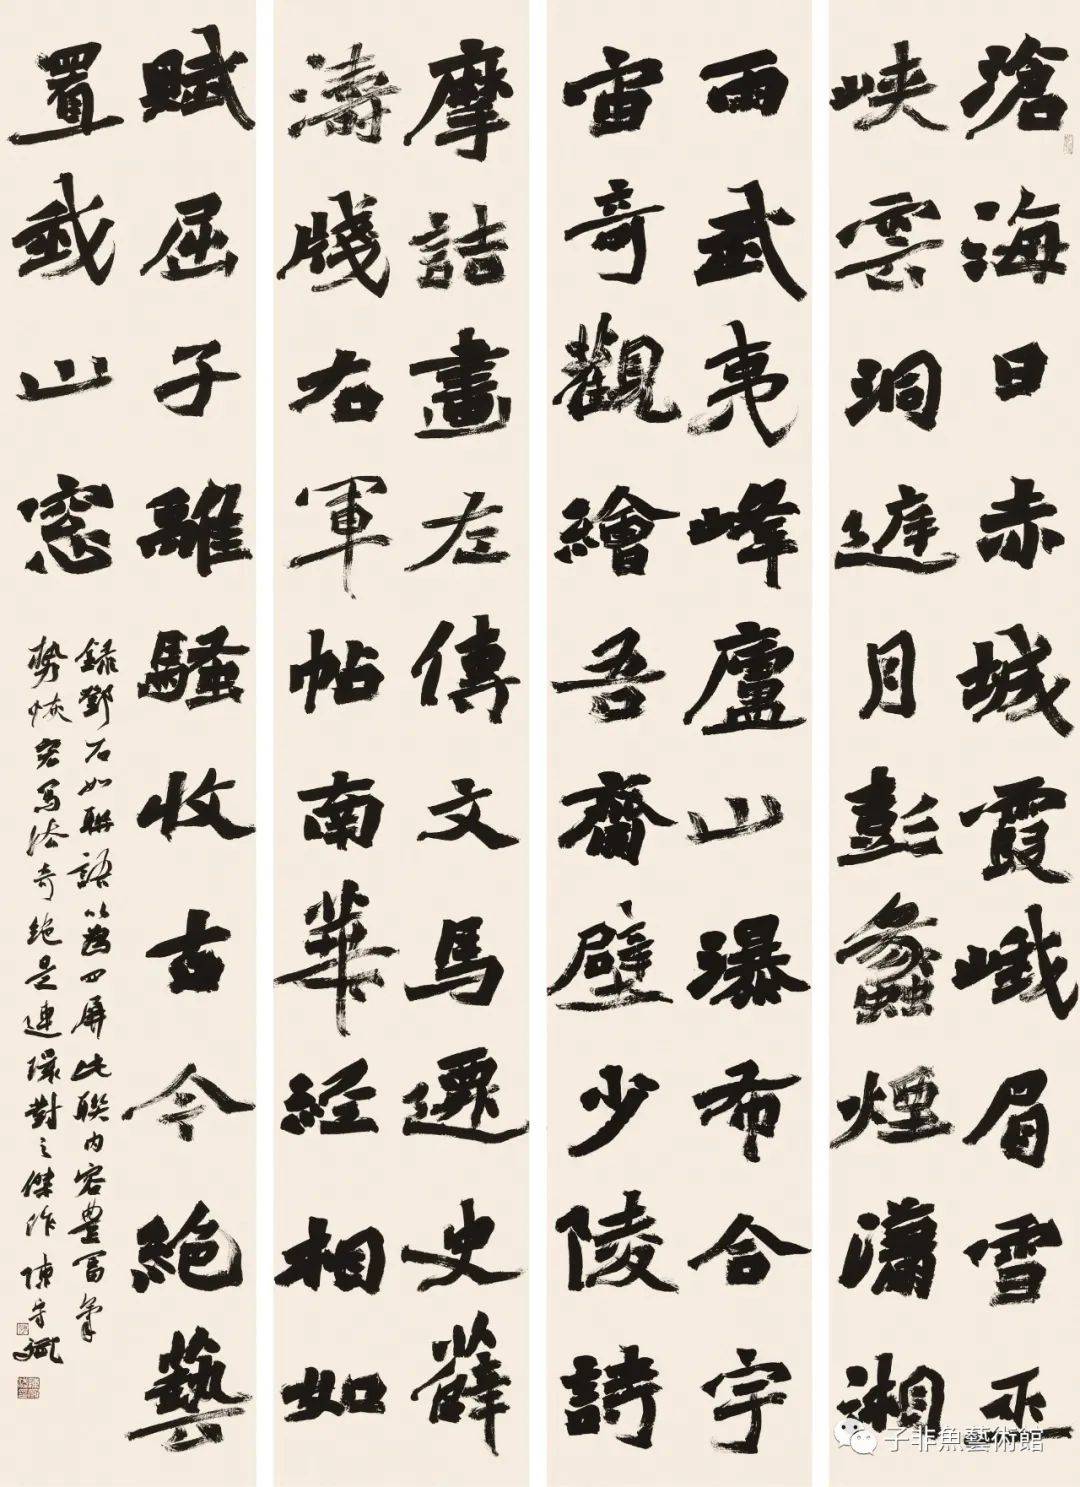 滄海日赤城霞峨眉雪巫
峽雲洞庭月彭蠡煙瀟湘
雨武夷峰廬山瀑布合宇
宙奇觀繪吾齋壁少陵詩
摩詰畫左傳文馬遷史薛
濤牋右軍帖南華經相如
賦屈子離騷收古今絕藝
置我山窓
錄鄧石如聯語以為四屏此聯內容豐富氣
勢恢宏寫法奇絕是連環對之傑作 陳
子非魚藝術館